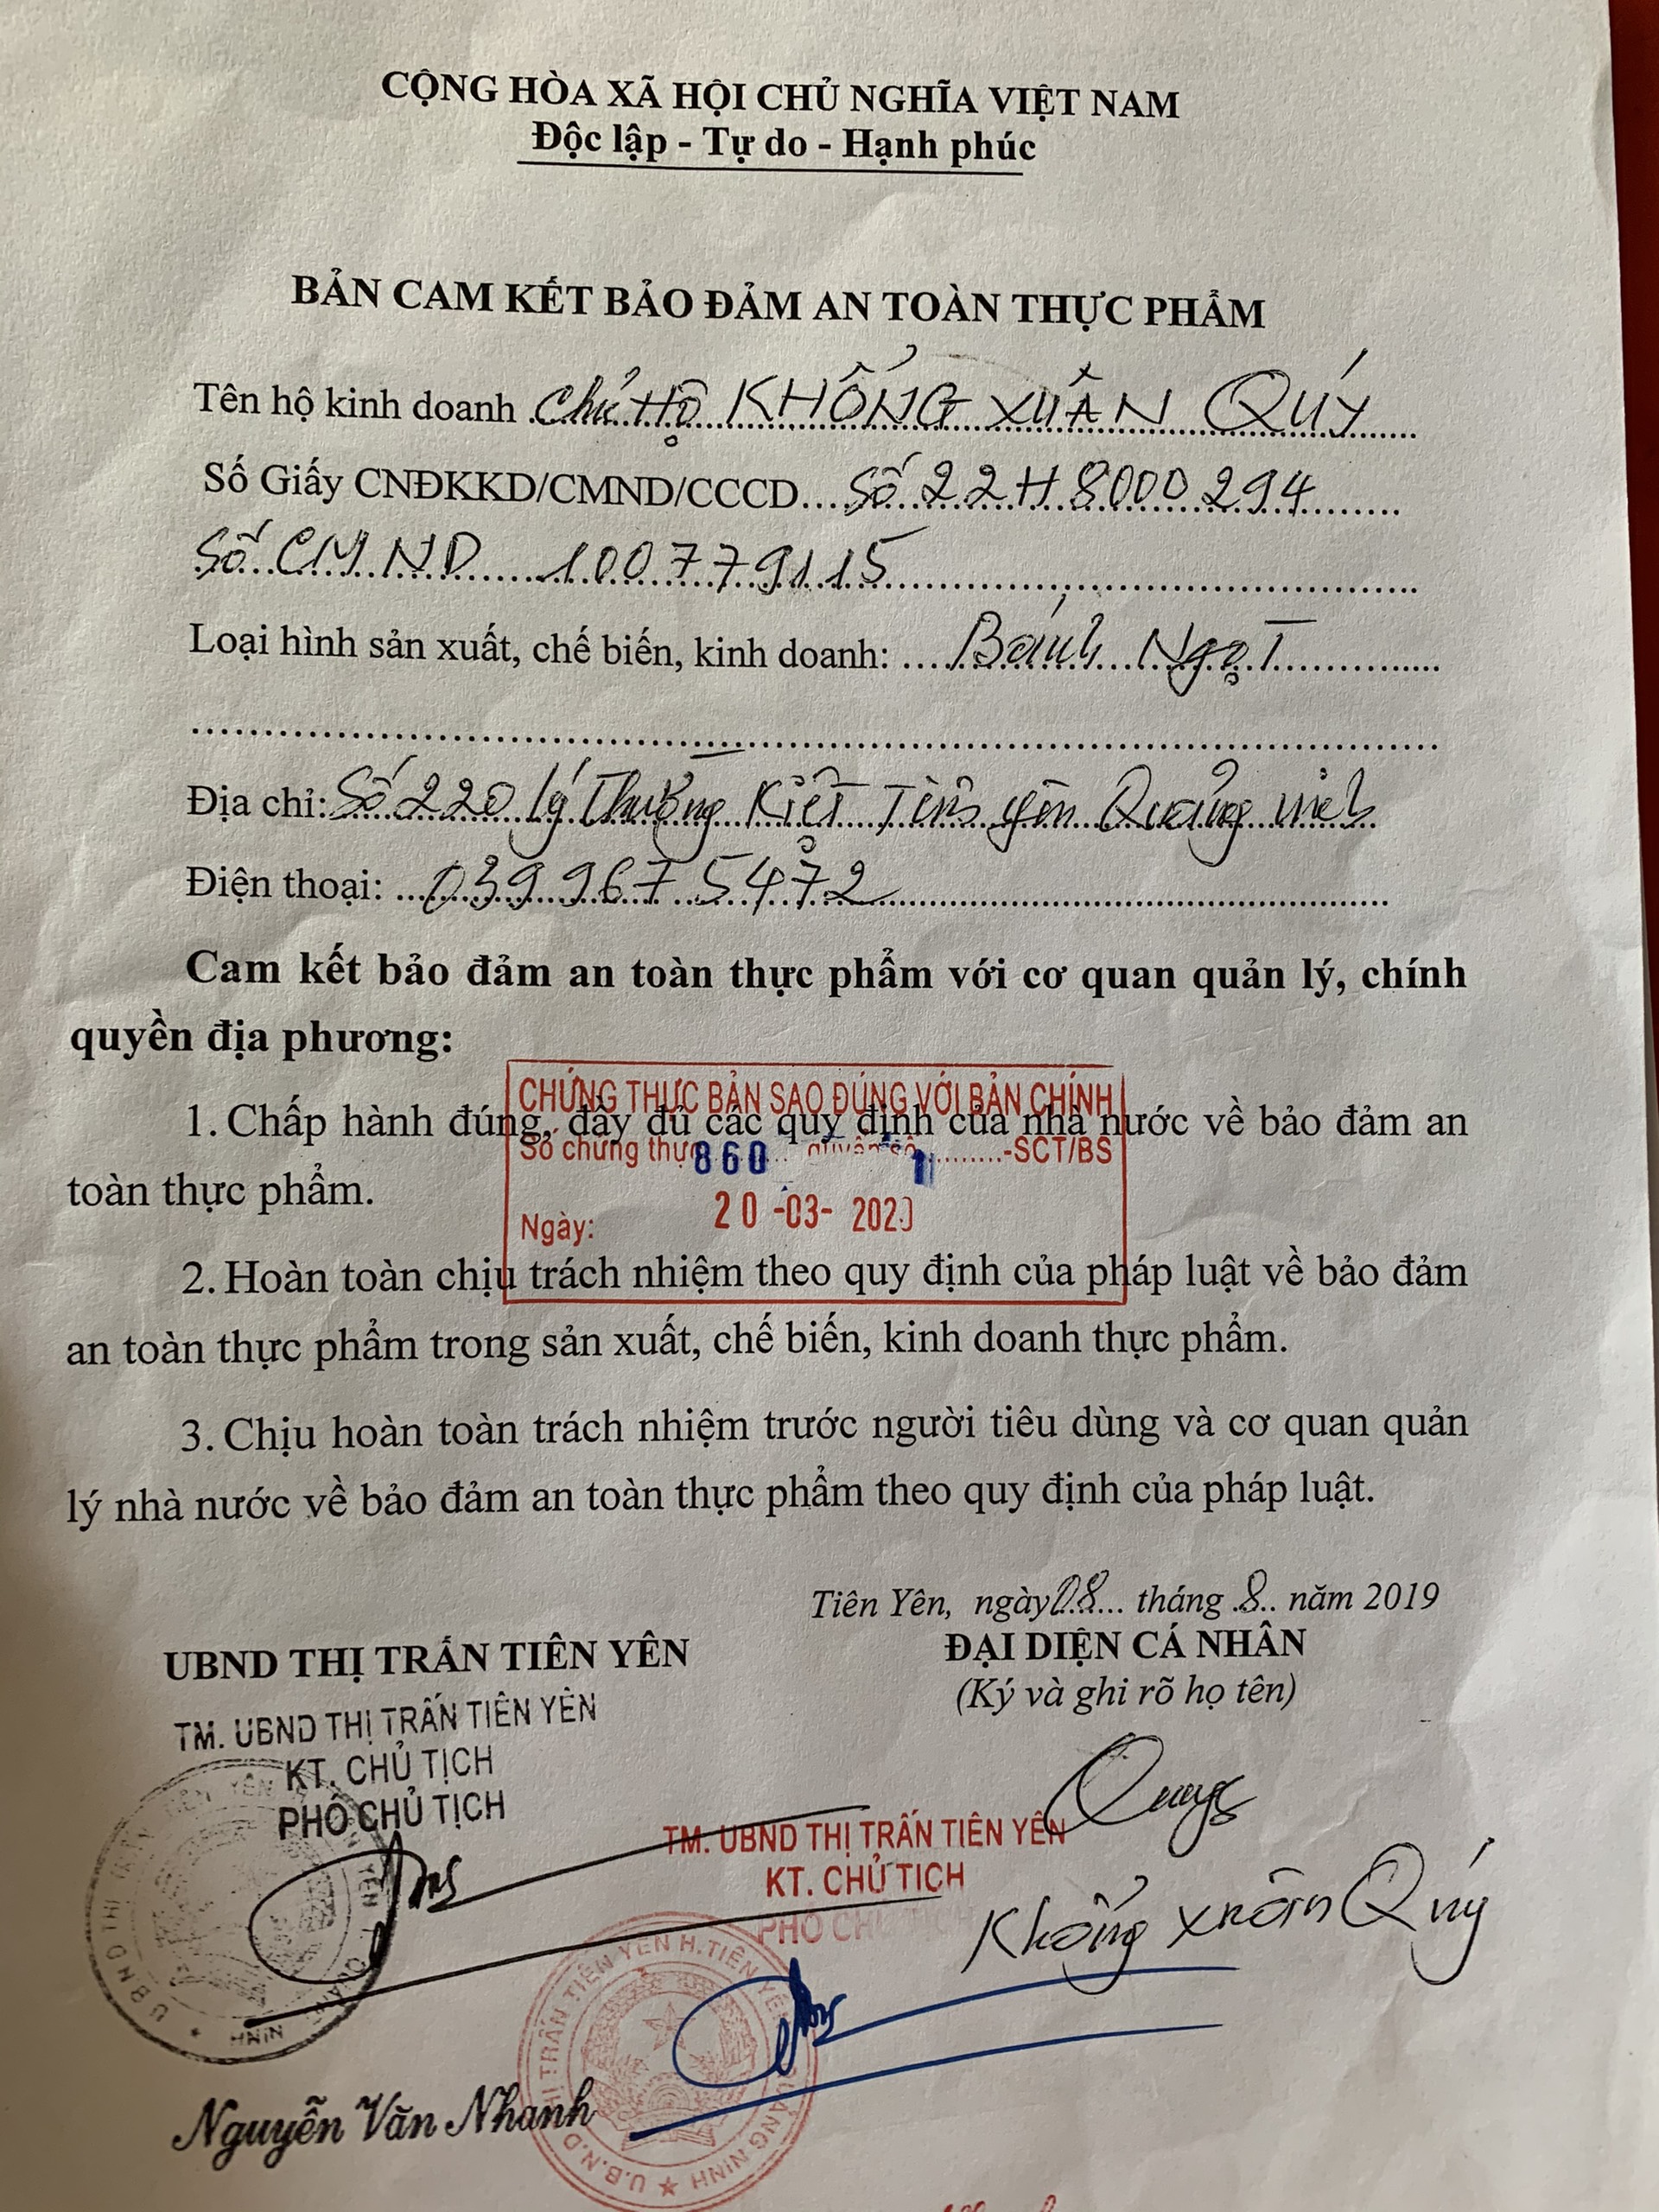 CỘNG HÒA XÃ HỘI CHỦ NGHĨA VIỆT NAM
Độc lập - Tự do - Hạnh phúc
BẢN CAM KẾT BẢO ĐẢM AN TOÀN THỰC PHẨM
Tên hộ kinh doanh Chủ Hộ KHỔNG XUÂN QUÝ
Số Giấy CNĐKKD/CMND/CCCD....Số 22H8000294
Số CMND 100779115
Loại hình sản xuất, chế biến, kinh doanh: ....Bánh Ngọt
Địa chỉ: Số 220 Lý Thường Kiệt Tiên Yên Quảng Ninh
Điện thoại: ...0399675472
Cam kết bảo đảm an toàn thực phẩm với cơ quan quản lý, chính
quyền địa phương:
CHỨNG THỰC BẢN SAO ĐÚNG VỚI BẢN CHÍNH
1. Chấp hành đúng, đầy đủ các quy định của nhà nước về bảo đảm an
Số chứng thực 860 quyển số 1 -SCT/BS
toàn thực phẩm.
Ngày: 20 -03- 2020
2. Hoàn toàn chịu trách nhiệm theo quy định của pháp luật về bảo đảm
an toàn thực phẩm trong sản xuất, chế biến, kinh doanh thực phẩm.
3. Chịu hoàn toàn trách nhiệm trước người tiêu dùng và cơ quan quản
lý nhà nước về bảo đảm an toàn thực phẩm theo quy định của pháp luật.
Tiên Yên, ngày 08 tháng 8 năm 2019
UBND THỊ TRẤN TIÊN YÊN
ĐẠI DIỆN CÁ NHÂN
(Ký và ghi rõ họ tên)
TM. UBND THỊ TRẤN TIÊN YÊN
KT. CHỦ TỊCH
PHÓ CHỦ TỊCH
TM. UBND THỊ TRẤN TIÊN YÊN
KT. CHỦ TỊCH
PHÓ CHỦ
Khổng Xuân Quý
U.B.N.D THỊ TRẤN TIÊN YÊN H.TIÊN YÊN QUẢNG NINH
Nguyễn Văn Nhanh